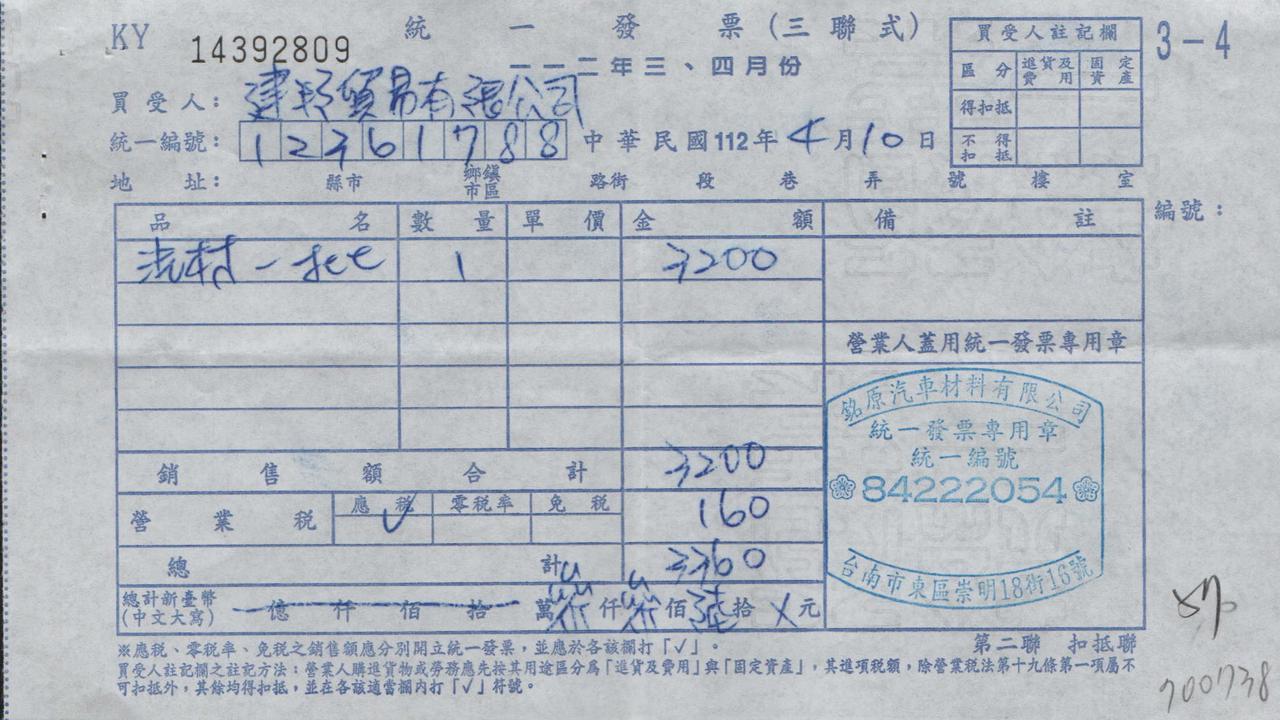 KY 14392809
統一發票(三聯式)
一一二年三、四月份
3-4
買受人註記欄
區分 進貨及費用 固定資產
得扣抵
不得扣抵
買受人: 建邦貿易有限公司
統一編號: 12361788 中華民國112年4月10日
地址: 縣市 鄉鎮市區 路街 段 巷 弄 號 樓 室
品名 數量 單價 金額 備註 編號:
汽材一批 1 3200
營業人蓋用統一發票專用章
銷售額合計 3200
營業稅 應稅 ✓ 零稅率 免稅 160
總計 3360
總計新臺幣(中文大寫) 億 仟 佰 拾 萬 參 仟 參 佰 陸 拾 X 元
銘原汽車材料有限公司
統一發票專用章
統一編號
84222054
台南市東區崇明18街16號
※應稅、零稅率、免稅之銷售額應分別開立統一發票，並應於各該欄打「✓」。
第二聯 扣抵聯
買受人註記欄之註記方法：營業人購進貨物或勞務應先按其用途區分為「進貨及費用」與「固定資產」，其進項稅額，除營業稅法第十九條第一項屬不
可扣抵外，其餘均得扣抵，並在各該適當欄內打「✓」符號。
700738